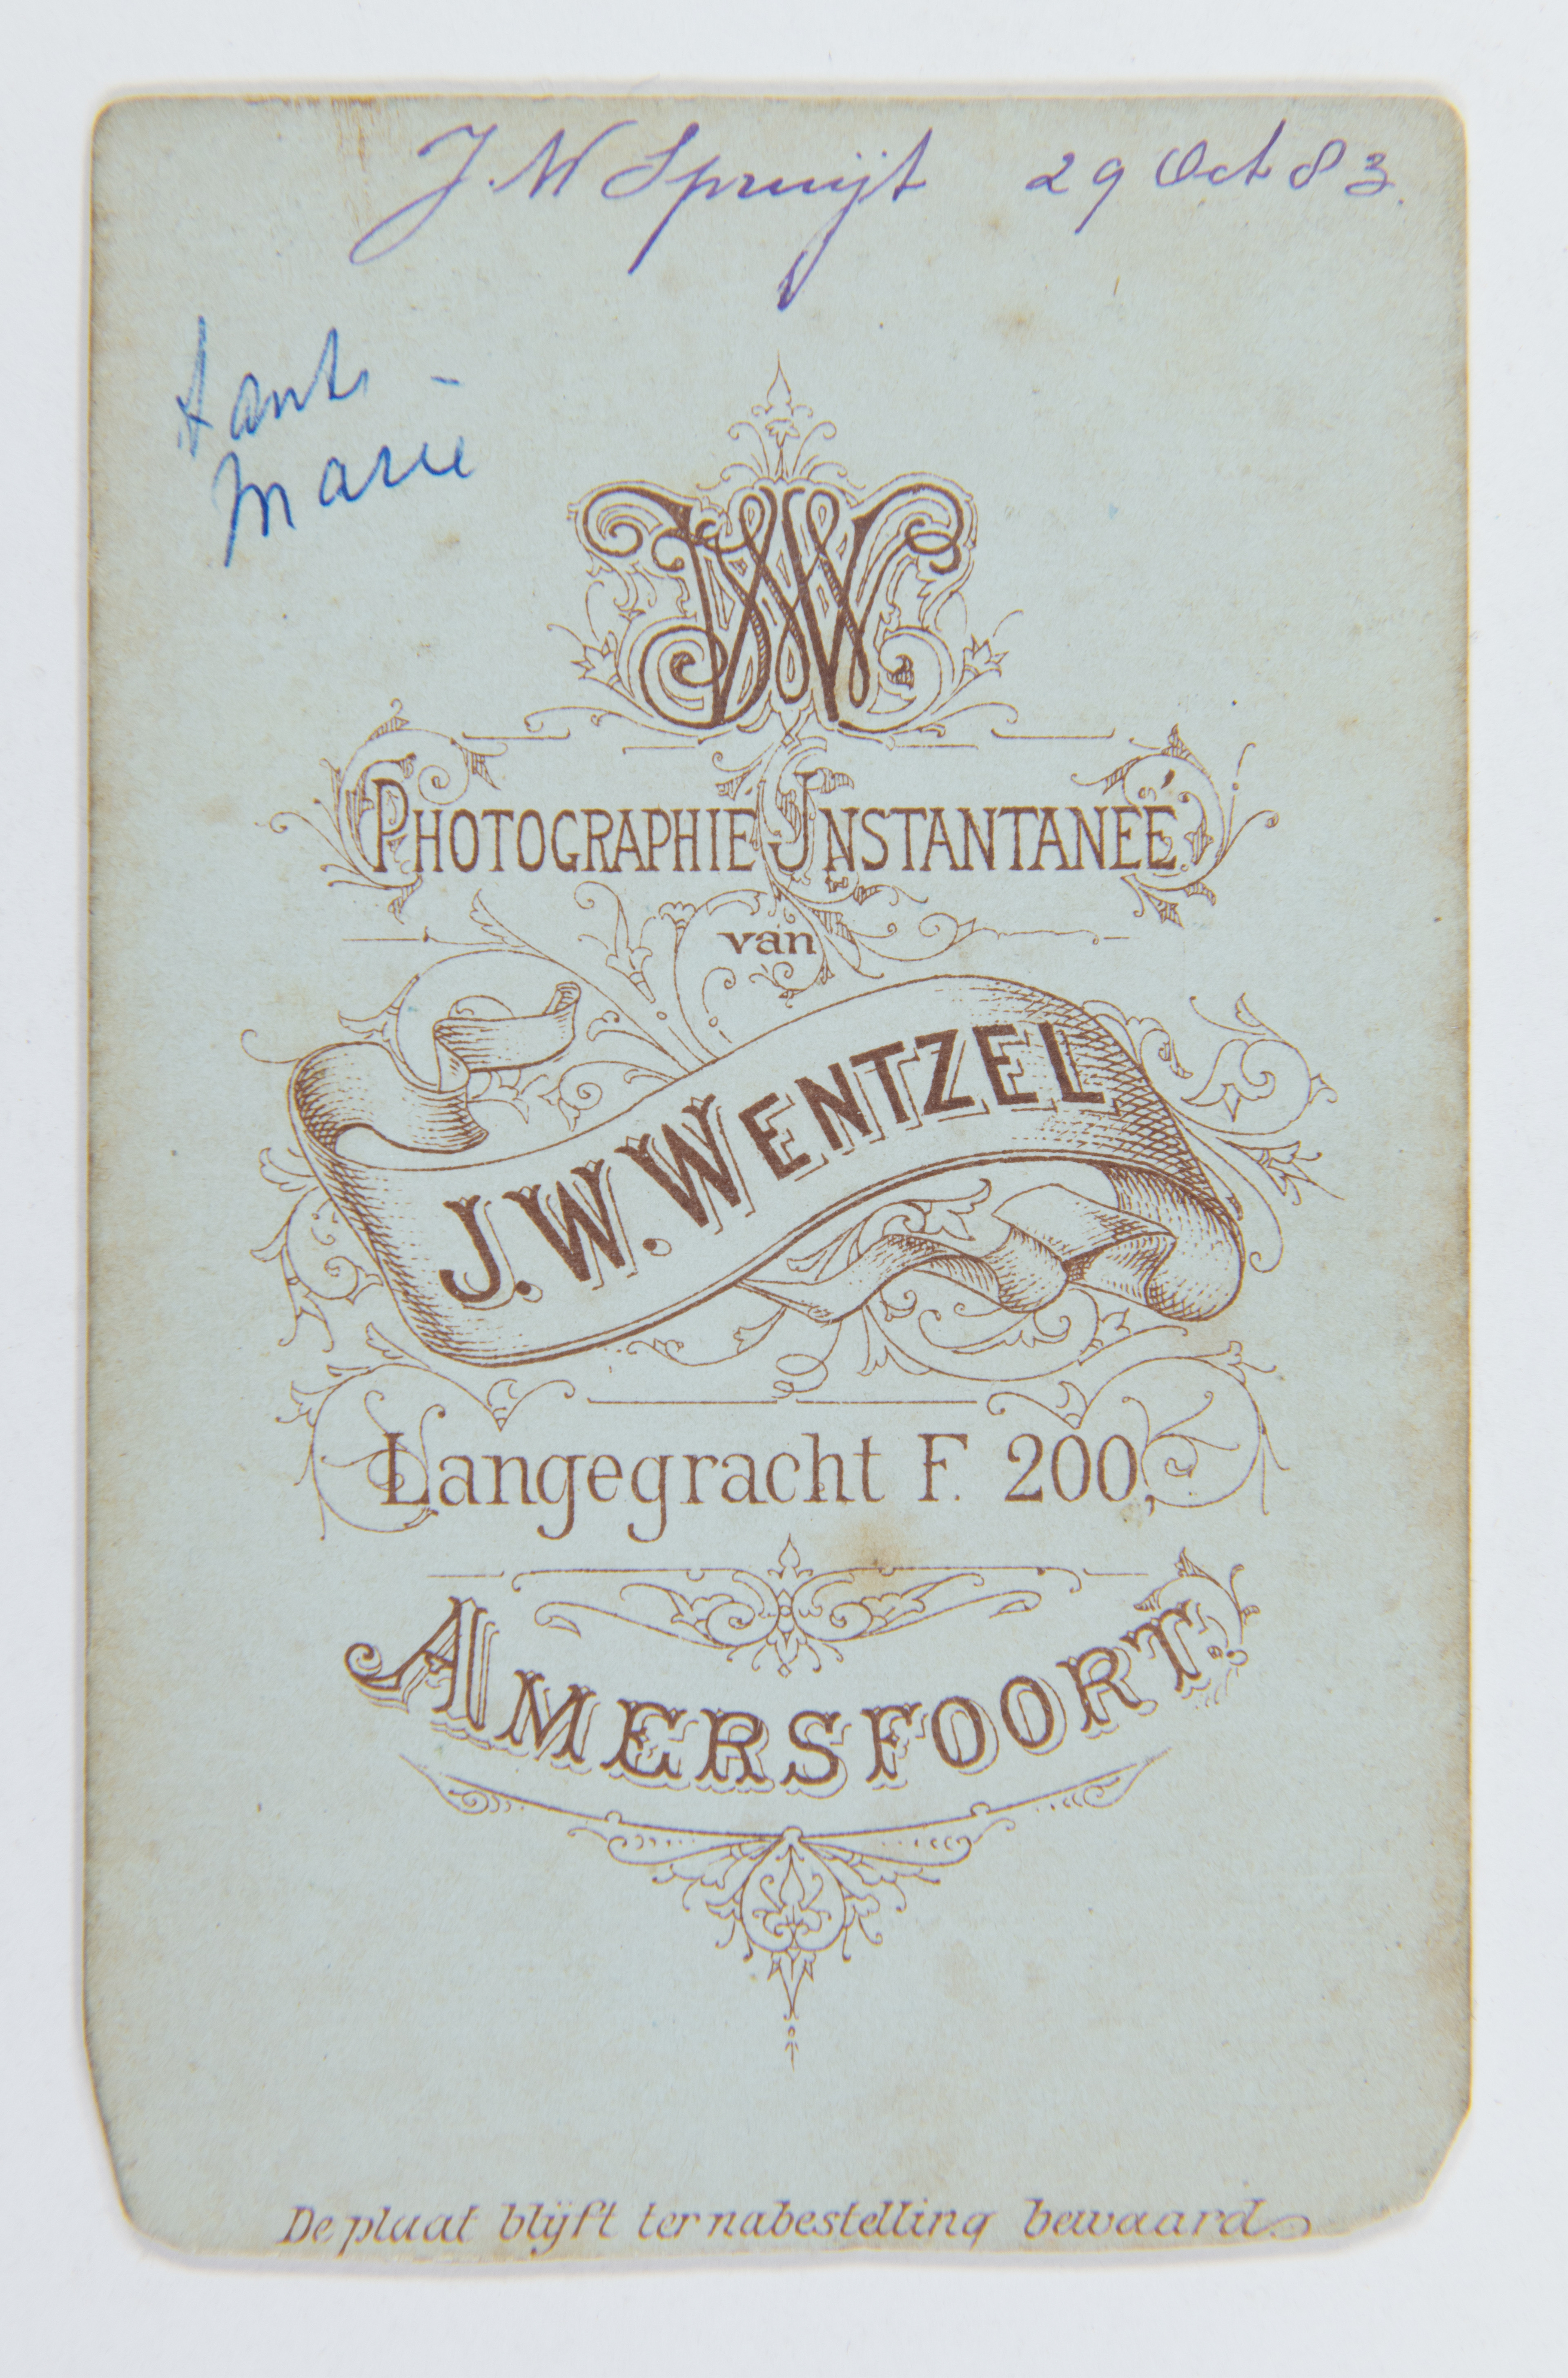 J. M Spruijt 29 Oct 83.
tante
Marie
JWW
PHOTOGRAPHIE INSTANTANÉE
van
J. W. WENTZEL,
Langegracht F. 200,
AMERSFOORT.
De plaat blijft ter nabestelling bewaard.